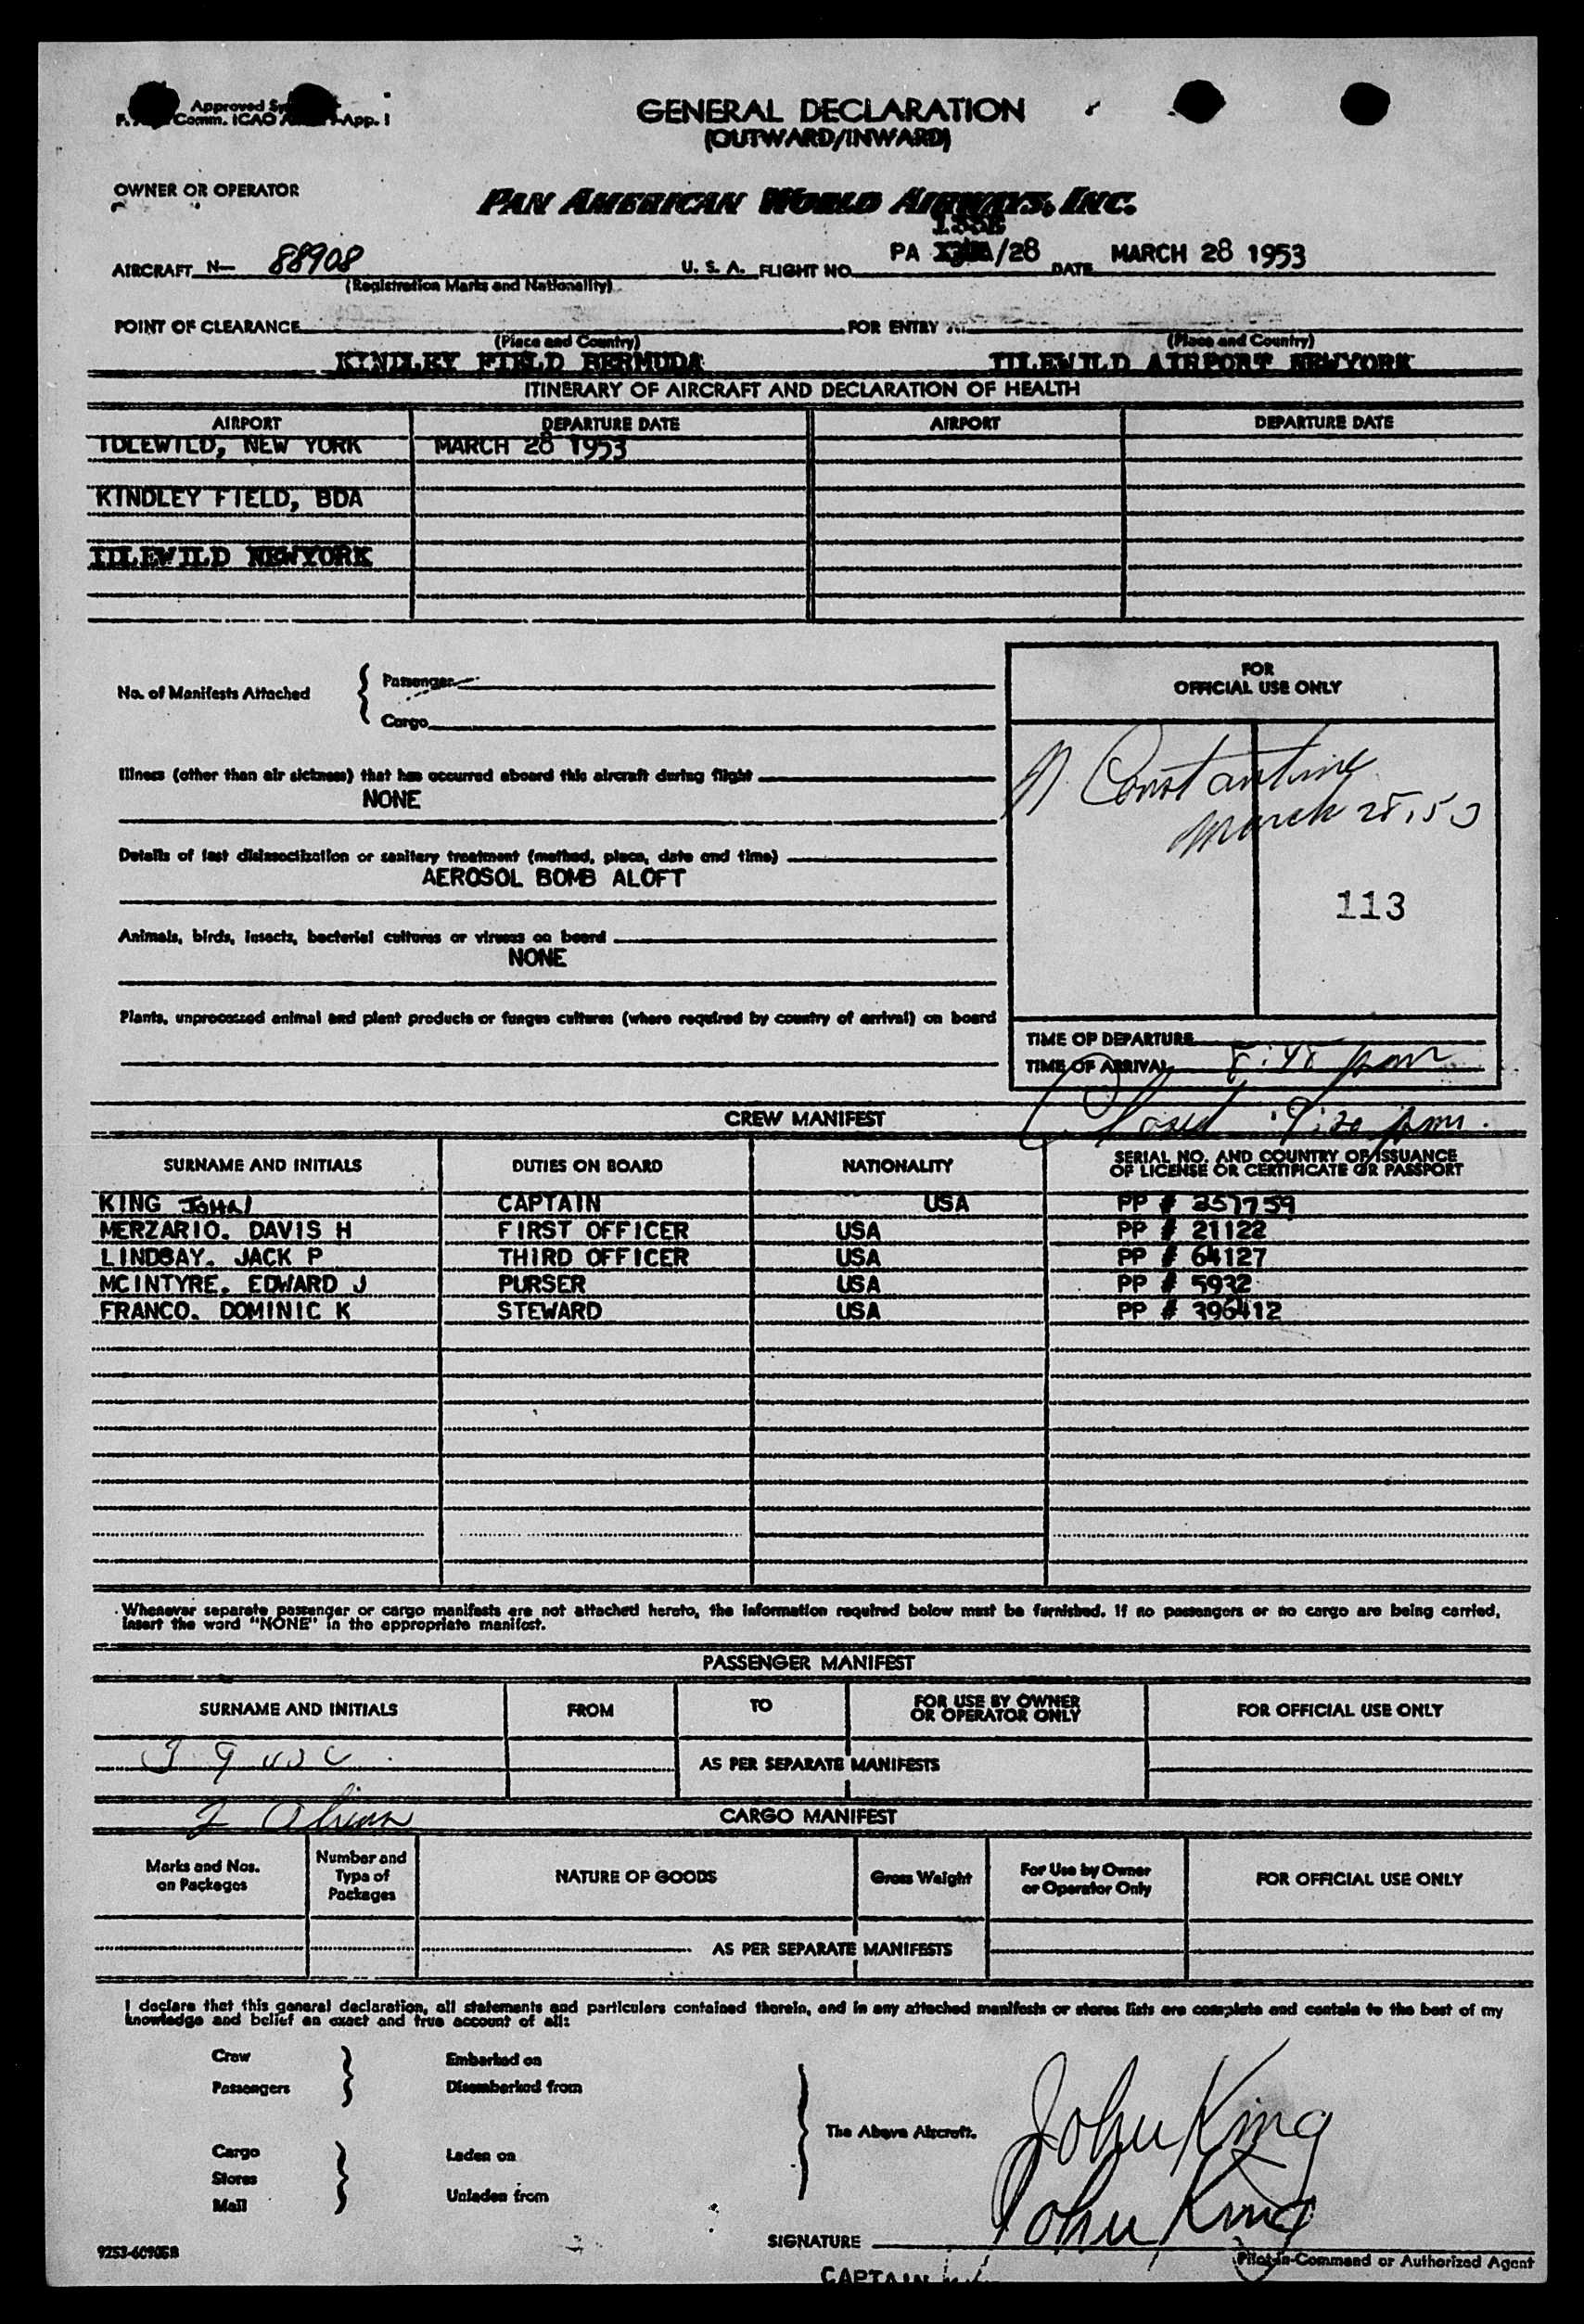 Approved
Comm. ICAO App. I
GENERAL DECLARATION
(OUTWARD/INWARD)
OWNER OR OPERATOR
PAN AMERICAN WORLD AIRWAYS, INC.
AIRCRAFT N— 88908 U. S. A. FLIGHT NO. PA /28 DATE MARCH 28 1953
(Registration Marks and Nationality)
POINT OF CLEARANCE FOR ENTRY AT
(Place and Country) (Place and Country)
KINDLEY FIELD BERMUDA IDLEWILD AIRPORT NEWYORK
ITINERARY OF AIRCRAFT AND DECLARATION OF HEALTH
AIRPORT DEPARTURE DATE AIRPORT DEPARTURE DATE
IDLEWILD, NEW YORK MARCH 28 1953
KINDLEY FIELD, BDA
IDLEWILD NEWYORK
No. of Manifests Attached { Passenger
Cargo
FOR
OFFICIAL USE ONLY
N Constantine
March 28, 53
113
Illness (other than air sickness) that has occurred aboard this aircraft during flight
NONE
Details of last disinsectization or sanitary treatment (method, place, date and time)
AEROSOL BOMB ALOFT
Animals, birds, insects, bacterial cultures or viruses on board
NONE
Plants, unprocessed animal and plant products or fungus cultures (where required by country of arrival) on board
TIME OF DEPARTURE
TIME OF ARRIVAL 8:48 pm
Closed 9:20 pm.
CREW MANIFEST
SURNAME AND INITIALS DUTIES ON BOARD NATIONALITY SERIAL NO. AND COUNTRY OF ISSUANCE
OF LICENSE OR CERTIFICATE OR PASSPORT
KING JOHN CAPTAIN USA PP # 357759
MERZARIO. DAVIS H FIRST OFFICER USA PP # 21122
LINDSAY. JACK P THIRD OFFICER USA PP # 64127
MCINTYRE. EDWARD J PURSER USA PP # 5932
FRANCO. DOMINIC K STEWARD USA PP # 396412
Whenever separate passenger or cargo manifests are not attached hereto, the information required below must be furnished. If no passengers or no cargo are being carried,
insert the word "NONE" in the appropriate manifest.
PASSENGER MANIFEST
SURNAME AND INITIALS FROM TO FOR USE BY OWNER
OR OPERATOR ONLY FOR OFFICIAL USE ONLY
AS PER SEPARATE MANIFESTS
2 Alien
CARGO MANIFEST
Marks and Nos.
on Packages Number and
Type of
Packages NATURE OF GOODS Gross Weight For Use by Owner
or Operator Only FOR OFFICIAL USE ONLY
AS PER SEPARATE MANIFESTS
I declare that this general declaration, all statements and particulars contained therein, and in any attached manifests or stores lists are complete and contain to the best of my
knowledge and belief an exact and true account of all:
Crew } Embarked on
Passengers Disembarked from
} The Above Aircraft.
Cargo } Laden on
Stores
Mail Unladen from
John King
John King
SIGNATURE
Pilot-in-Command or Authorized Agent
9253-60905B
CAPTAIN